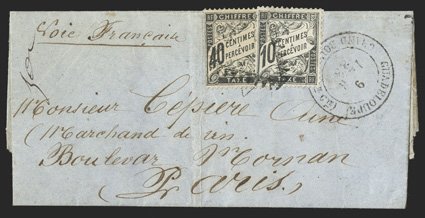 Voie Française
CHIFFRE
40
CENTIMES
PERCEVOIR
TAXE
CHIFFRE
10
CENTIMES
PERCEVOIR
TAXE
GUADELOUPE
6
Monsieur Cépière Ainé
Marchand de vin
Boulevar Mornan
Paris